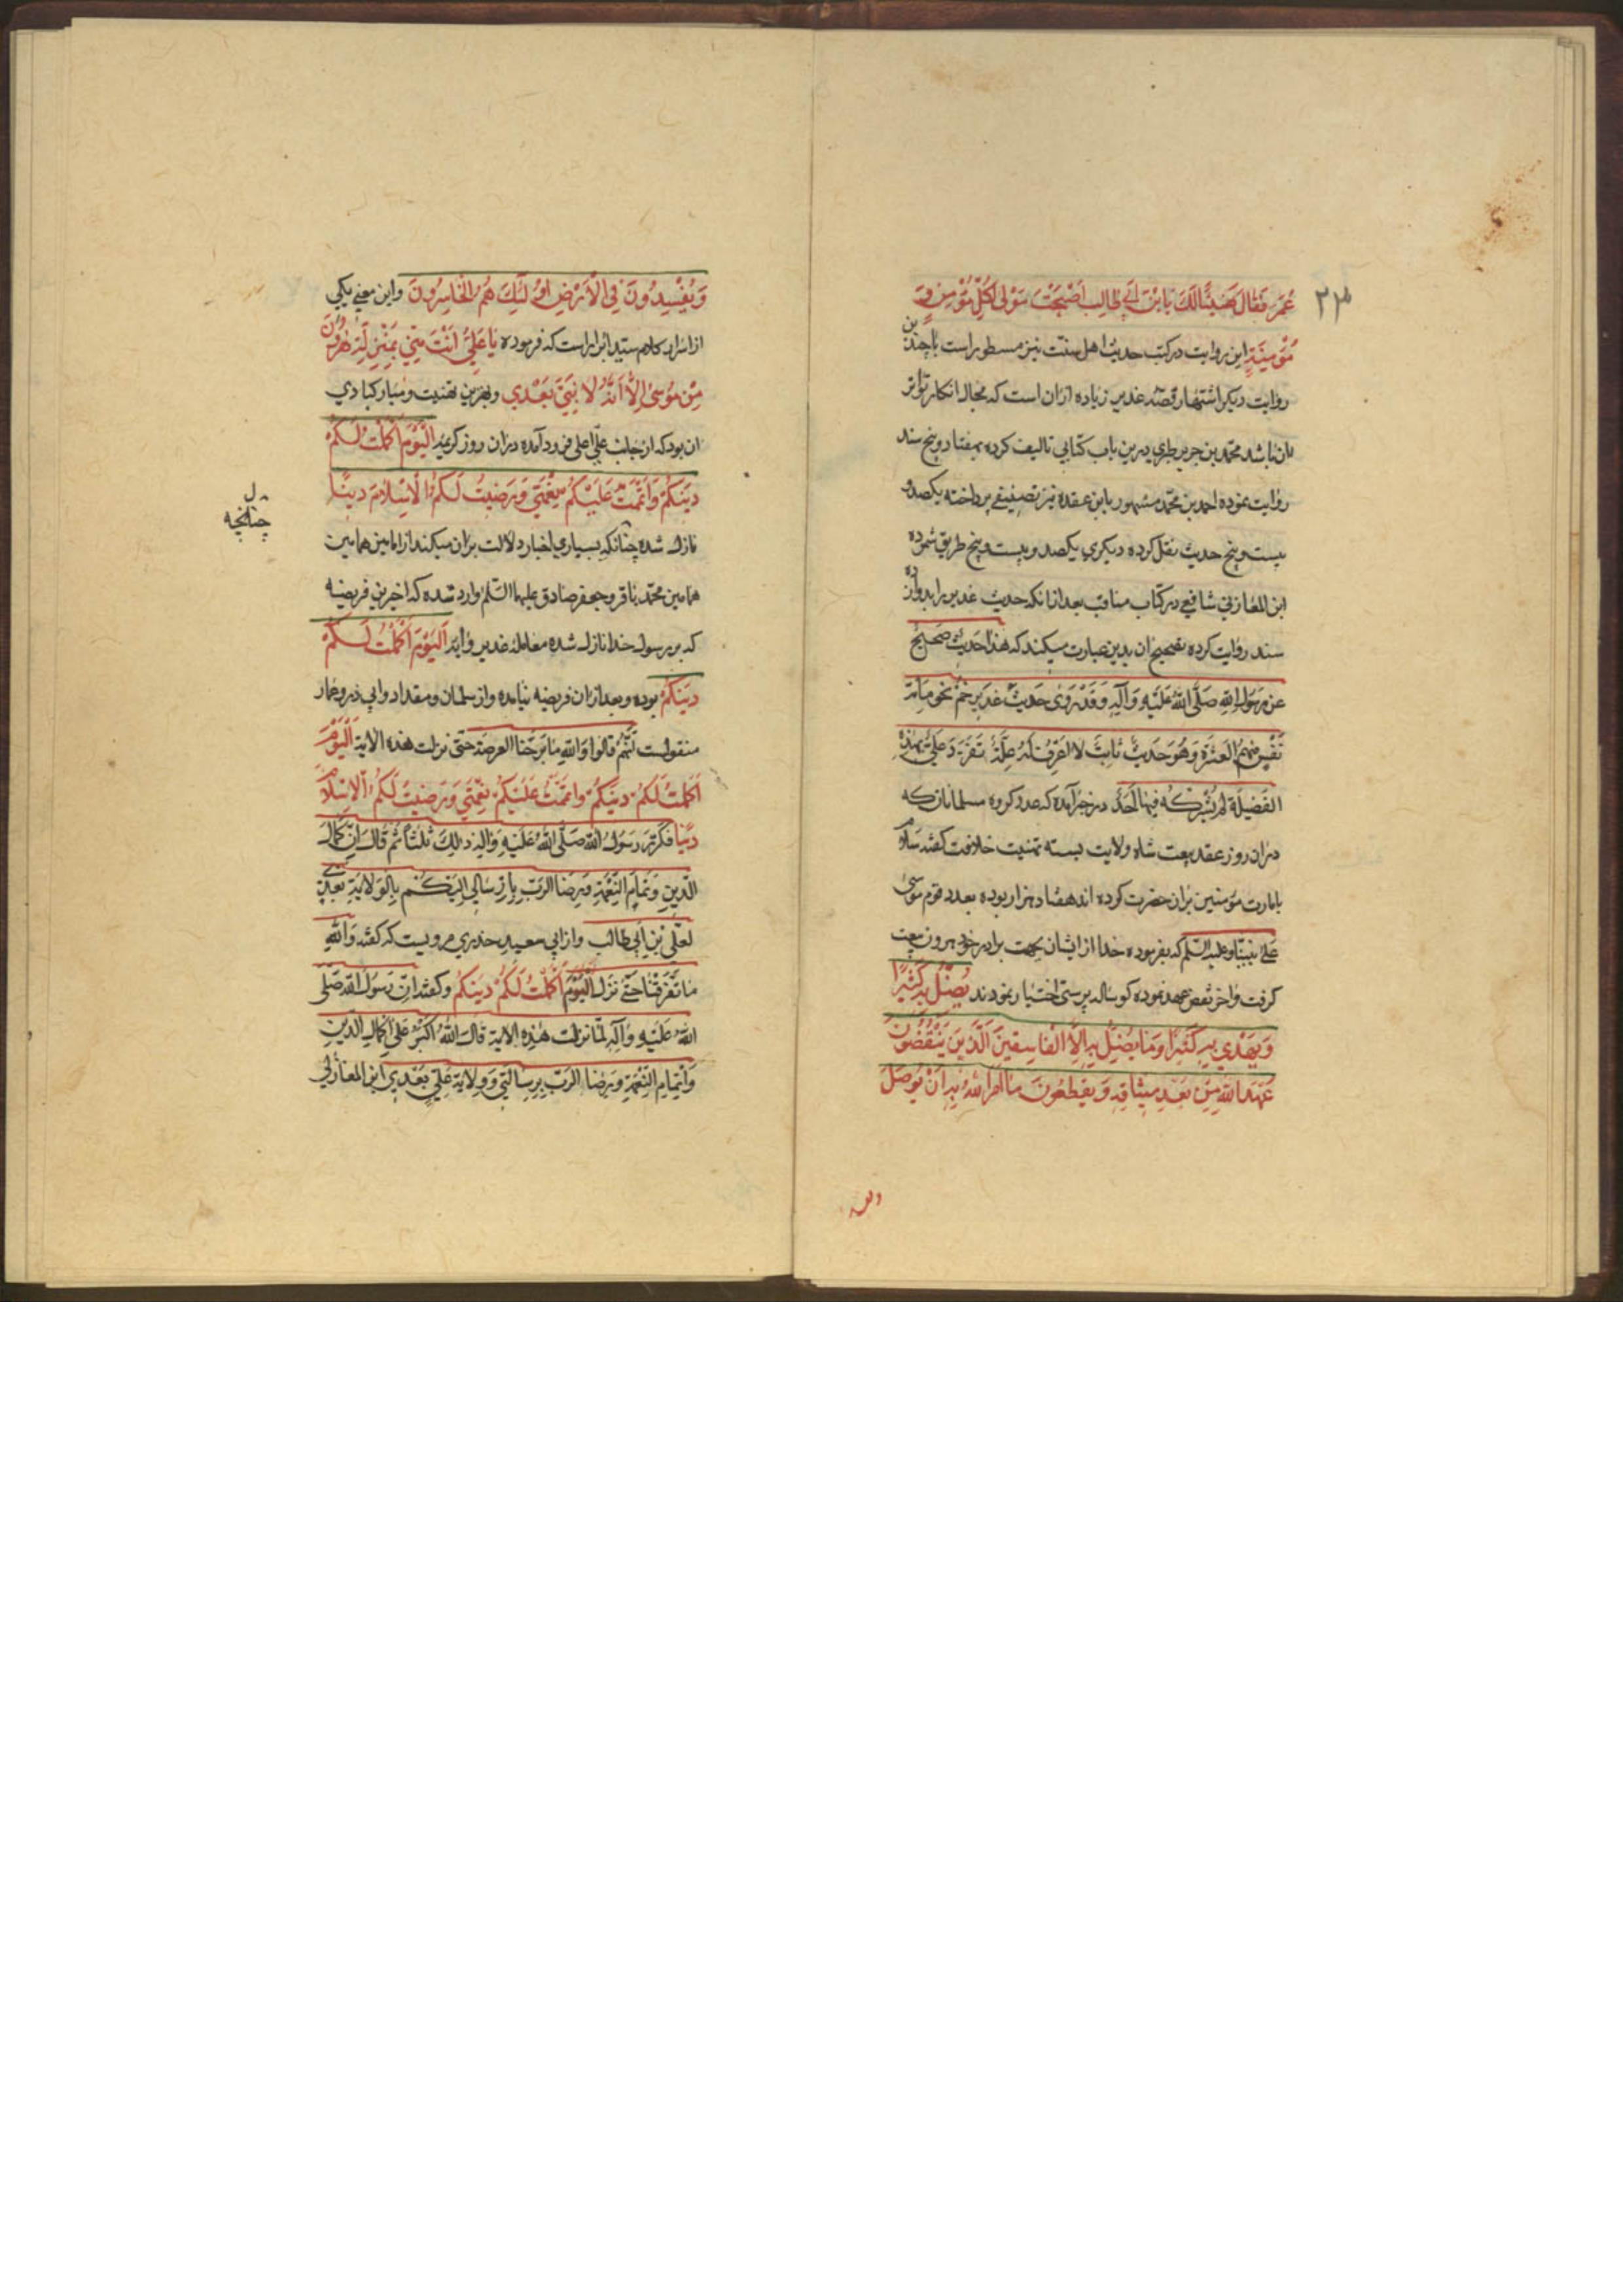 ٢٣
عُمَر فَقَالَ هَنِیئًا لَكَ یَا بْنَ اَبِي طَالِبٍ اَصْبَحْتَ مَوْلٰی كُلِّ مُؤْمِنٍ وَ
مُؤْمِنَةٍ این روایت در کتب حدیث اهل سنّت نیز مسطور است با چندین
روایت دیگر اشتهار قصّه غدیر زیاده ازان است که مجال انکار تواتر
ان باشد محمّد بن جریر طبری درین باب کتابي تالیف کرده بهفتاد و پنج سند
روایت نموده احمد بن محمّد مشهور بابن عقده نیز تصنیفي پرداخته یکصد و
بیست و پنج حدیث نقل کرده دیگري یکصد و بیست و پنج طریق شمرده
ابن المغازلي شافعي در کتاب مناقب بعد ازانکه حدیث غدیر را بدوازده
سند روایت کرده تصحیح ان بدین عبارت میکند که هذا حَدیثٌ صَحیحٌ
عَن رَسُولِ اللهِ صَلَّی اللهُ عَلَیْهِ وَآلِهِ وَقَدْ رَوٰی حَدیثَ غَدیرِ خُمٍّ نَحْوُ مِائَةِ
نَفْسٍ مِنْهُمُ الْعَشَرَةُ وَهُوَ حَدیثٌ ثَابِتٌ لَا اَعْرِفُ لَهُ عِلَّةً تَفَرَّدَ عَلِيٌّ بِهٰذِهِ
الفَضیلَةِ لَمْ یُشْرِكْهُ فیهَا اَحَدٌ در خبر آمده که عدد گروه مسلمانان که
دران روز عقد بیعت شاه ولایت بسته تهنیت خلافت گفته سلام
بامارت مؤمنین بران حضرت کرده اند هفتاد هزار بوده بعدد قوم موسٰی
عَلٰی نَبِیِّنَا وعلیه السّلم که بفرموده خدا از ایشان بجهت برادر خود هرون بیعت
گرفت واخر نقض عهد نموده گوساله پرستي اختیار نمودند یُضِلُّ بِهِ كَثِیرًا
وَیَهْدِي بِهِ كَثِیرًا وَمَا یُضِلُّ بِهِ اِلَّا الْفَاسِقینَ اَلَّذینَ یَنْقُضُونَ
عَهْدَ اللهِ مِنْ بَعْدِ مِیثَاقِهِ وَیَقْطَعُونَ مَا اَمَرَ اللهُ بِهِ اَنْ یُوصَلَ
وَیُفْسِدُونَ فِي الْاَرْضِ اُولٰئِكَ هُمُ الْخَاسِرُونَ واین معني یکي
از اسرار کلام سیّد ابرار است که فرموده یَا عَلِيُّ اَنْتَ مِنّي بِمَنْزِلَةِ هٰرُونَ
مِنْ مُوسٰی اِلَّا اَنَّهُ لَا نَبِيَّ بَعْدي وبهترین تهنیت ومبارکبادي
ان بود که از جانب عليّ اعلی فرود آمده دران روز کریمه اَلْیَوْمَ اَكْمَلْتُ لَكُمْ
دِینَكُمْ وَاَتْمَمْتُ عَلَیْكُمْ نِعْمَتِي وَرَضِیتُ لَكُمُ الْاِسْلَامَ دِینًا
نازل شده چنانکه بسیاري اخبار دلالت بران میکند از امامین همامین
چنانچه
همامین محمّد باقر وجعفر صادق علیهما السّلم وارد شده که اخرین فریضه
که بر رسول خدا نازل شده معامله غدیر وآیه اَلْیَوْمَ اَكْمَلْتُ لَكُمْ
دِینَكُمْ بوده وبعد ازان فریضه نیامده واز سلمان ومقداد وابي ذر وعمار
منقولست اَنَّهُمْ قالوا وَاللهِ مَا بَرِحْنَا العرصَة حَتّی نزلت هذه الایة اَلْیَوْمَ
اَكْمَلْتُ لَكُمْ دِینَكُمْ وَاَتْمَمْتُ عَلَیْكُمْ نِعْمَتِي وَرَضِیتُ لَكُمُ الْاِسْلَامَ
دِینًا فَكَرَّرَ رَسُولُ اللهِ صَلَّی اللهُ عَلَیْهِ وَآلِهِ ذٰلِكَ ثَلٰثًا ثُمَّ قَالَ اِنَّ كَمَالَ
الدّینِ وَتَمَامَ النِّعْمَةِ وَرِضَا الرَّبِّ بِاِرْسَالِي اِلَیْكُمْ بِالْوَلَایَةِ بَعْدِي
لِعَلِيِّ بْنِ اَبِي طَالِب واز ابي سعید خدري مرویست که گفته وَاللهِ
مَا تَفَرَّقْنَا حَتّٰی نَزَلَ اَلْیَوْمَ اَكْمَلْتُ لَكُمْ دِینَكُمْ وگفته انّ رَسُولَ اللهِ صَلَّی
اللهُ عَلَیْهِ وَآلِهِ لَمَّا نزلت هٰذِهِ الایة قَالَ اللهُ اَكْبَرُ عَلٰی اِكْمَالِ الدّینِ
وَاِتْمَامِ النِّعْمَةِ وَرِضَا الرَّبِّ بِرِسَالَتِي وَوِلَایَةِ عَلِيٍّ بَعْدِي ابن المغازلي